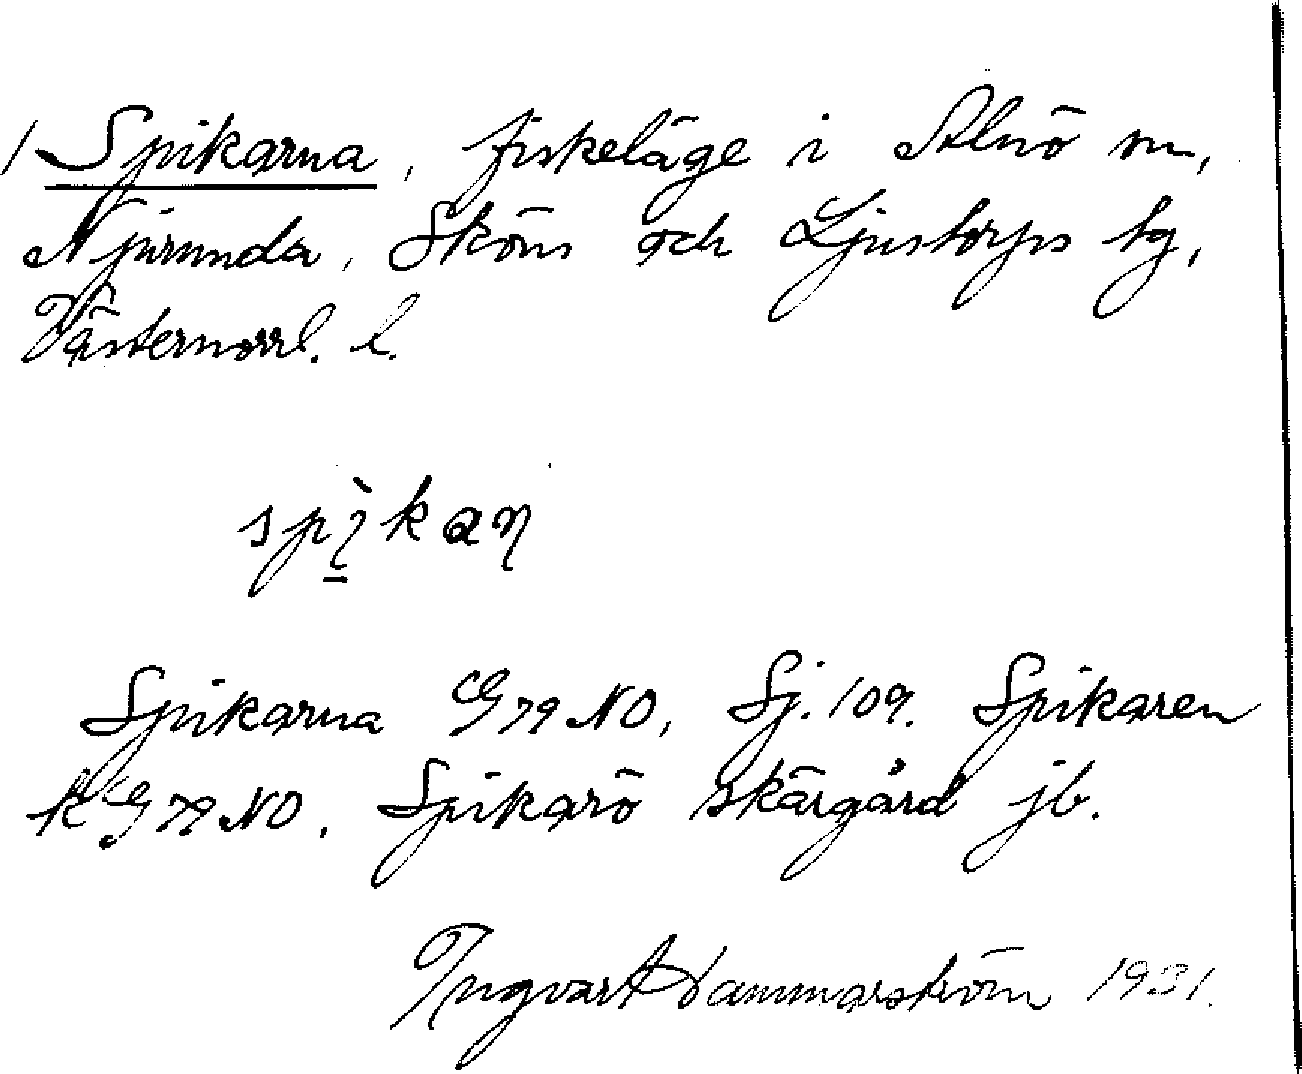 1 Spikarna, fiskeläge i Alnö sn,
Njurunda, Sköns och Ljustorps tg,
Västernorrl. l.
spìkaɳ
Spikarna G 79 NO, Sj. 109. Spikaren
k G 79 NO, Spikarö skärgård jb.
Ingvart Hammarström 1931.